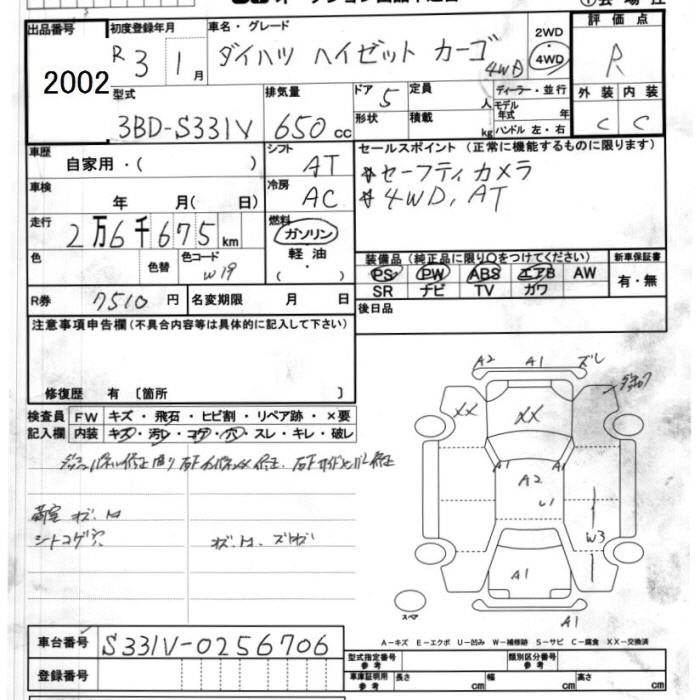 出品番号 初度登録年月 車名・グレード 2WD ・ 4WD 評価点
2002 R 3 1月 ダイハツ ハイゼット カーゴ 4WD R
型式 排気量 ドア 5 定員 人 ディーラー・並行 外装 内装
3BD-S331V 650cc 形状 積載 kg モデル年式 年 ハンドル 左・右 C C
車歴 自家用・( ) シフト AT セールスポイント (正常に機能するものに限ります)
☆セーフティカメラ
車検 年 月( 日) 冷房 AC ☆4WD, AT
走行 2万6千675km 燃料 ガソリン
色 色替 色コード W19 軽油 ( ) 装備品 (純正品に限り○をつけてください) 新車保証書
PS PW ABS エアB AW 有・無
SR ナビ TV カワ
R券 7510円 名変期限 月 日 後日品
注意事項申告欄(不具合内容等は具体的に記入して下さい)
修復歴 有 〔箇所 〕
検査員 FW キズ・飛石・ヒビ割・リペア跡・×要
記入欄 内装 キズ・汚レ・コゲ・穴・スレ・キレ・破レ
シートコゲ穴
A2 A1 ズレ
XX XX
A1 A1
A2
U1
W3
A1
スペア A1
A-キズ E-エクボ U-凹み W-補修跡 S-サビ C-腐食 XX-交換済
車台番号 S331V-0256706
型式指定番号 参考 類別区分番号 参考
登録番号 車庫証明用 参考 長さ cm 幅 cm 高さ cm